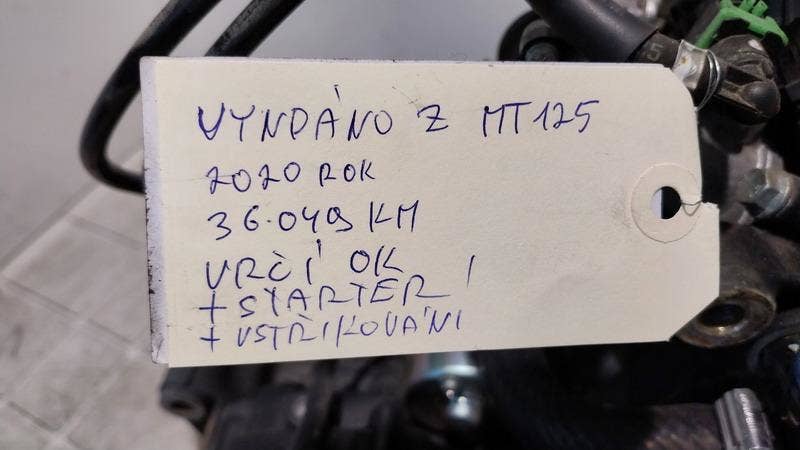 VYNDÁNO Z MT125
2020 ROK
36.049 KM
VRČÍ OK
+ STARTER
+ VSTŘIKOVÁNÍ